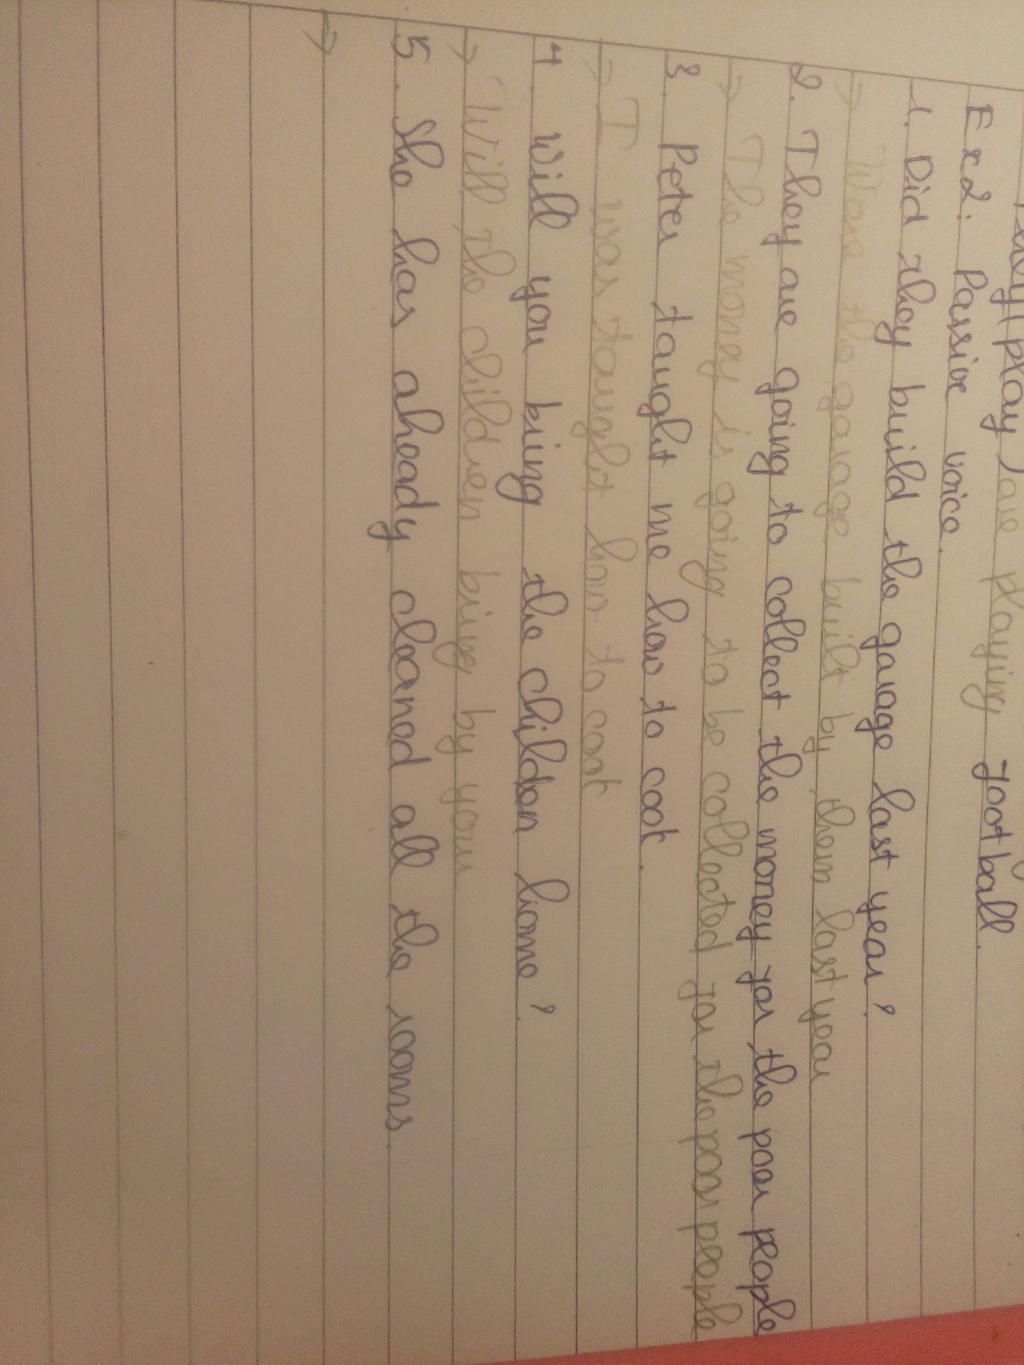 play / are playing football.
Ex2: Passive voice.
1. Did they build the garage last year?
→ Were the garage built by them last year
2. They are going to collect the money for the poor people
→ The money is going to be collected for the poor people
3. Peter taught me how to cook.
→ I was taught how to cook
4. Will you bring the children home?
→ Will the children bring by your
5. She has already cleaned all the rooms.
→